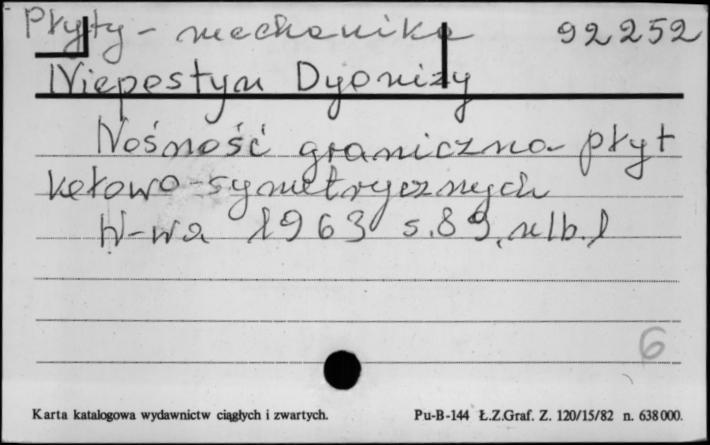 Płyty - mechanika 92252
Niepostyn Dyonizy
Nośność graniczna płyt
kołowo-symetrycznych
W-wa 1963 s. 89, nlb. 1
6
Karta katalogowa wydawnictw ciągłych i zwartych. Pu-B-144 Ł.Z.Graf. Z. 120/15/82 n. 638000.